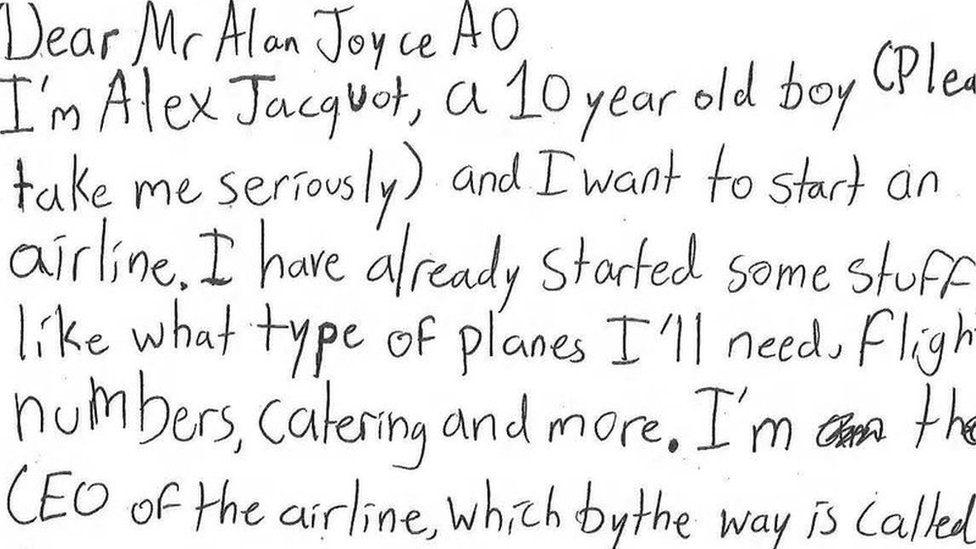 Dear Mr Alan Joyce AO
I'm Alex Jacquot, a 10 year old boy (Plea
take me seriously) and I want to start an
airline. I have already started some stuff
like what type of planes I'll need, fligh
numbers, catering and more. I'm the
CEO of the airline, which by the way is called